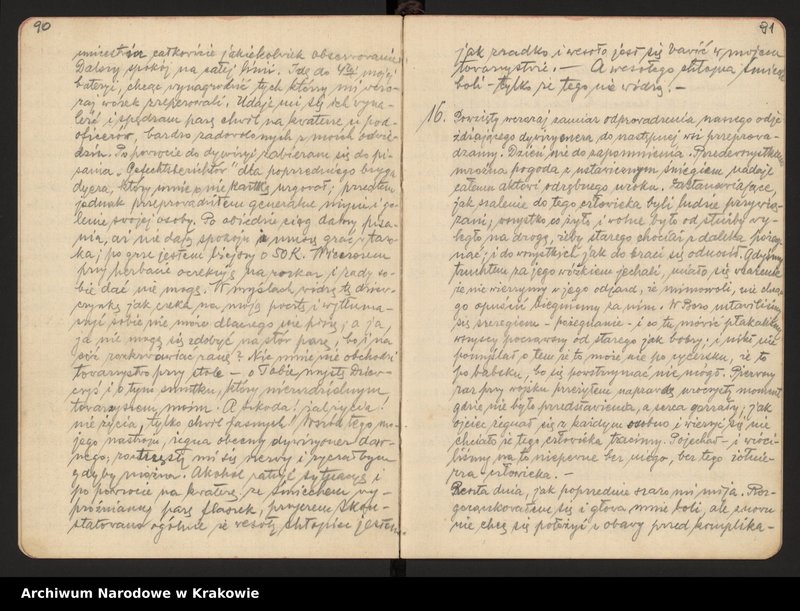 90
całkowicie jakiekolwiek obserwowanie
Dalszy spokój na całej linii. Idę do 4tej mojej
bateryi, chcąc wynagrodzić tych którzy mi wczo-
raj worek zreperowali. Udaje mi się cel wyna-
leźć i spędzam parę chwil na kwaterze u pod-
oficerów, bardzo zadowolonych z moich odwie-
dzin. Po powrocie do dywizyi zabieram się do pi-
sania „Gefechtsberichtów" dla poprzedniego bryga-
dyera, który mnie o nie kartką urgował; przedtem
jednak przeprowadziłem generalne mycie i go-
lenie swojej osoby. Po obiedzie ciąg dalszy pisa-
nia, ale nie dają spokoju i muszę grać w taro-
ka; po grze jestem bliejszy o 50 K. Wieczorem
przy herbacie oczekuję na rozkaz i rady so-
bie dać nie mogę. W myślach widzę tę dziew-
czynkę jak czeka na moją pocztę i wytłuma-
czyć sobie nie może dlaczego nie piszę; a ja,
ja nie mogę się zdobyć na słów parę, bo i na
cóż rozkrwawiać ranę? Nic mnie nie obchodzi
towarzystwo przy stole — o Tobie myślę dziew-
czyś i o tym smutku, który nieodzielnym
towarzyszem moim. A szkoda! zabrycia!
nie życia, tylko chwil jasnych! Wśród tego mo-
jego nastroju, żegna obecny dywizyoner daw-
nego; roztrzęsły mi się nerwy i ryczałbym
gdyby można. Alkohol ratuje sytuacyę i
po powrocie na kwaterę ze śmiechem wy-
próżniamy parę flaszek, przyczem skon-
statowano ogólnie że wesoły chłopiec jestem
91
jak rzadko i wesoło jest się bawić w mojem
towarzystwie. — A wesołego chłopca śmiech
boli — tylko że tego nie widzą. —
16. Powzięty wczoraj zamiar odprowadzenia naszego odje-
żdżającego dywizyonera do następnej wsi przeprowa-
dzamy. Dzień nie do zapomnienia. Przedewszystkiem
mroźna pogoda z ustawicznym śniegiem, nadaje
całemu aktowi odrębnego uroku. Zastanawiające,
jak szalenie do tego człowieka byli ludzie przywią-
zani; wszystko co żyło i wolne było od służby wy-
legło na drogę, żeby starego chociaż z daleka pożeg-
nać; i do wszystkich jak do braci się odnosił. Gdyśmy
truchtem za jego wózkiem jechali, miało się wrażenie
że nie wierzymy w jego odjazd, że mimowoli, nie chcąc
go opuścić biegniemy za nim. W Boro ustawiliśmy
się szeregiem — pożegnanie — i co tu mówić płakaliśmy
wszyscy począwszy od starego jak bobry; i nikt nie
pomyślał o tem że to może nie po rycersku, że to
po babsku, bo się powstrzymać nie mógł. Pierwszy
raz przy wojsku przeżyłem naprawdę uroczysty moment
gdzie nie było przedstawienia, a serca gorzały; jak
ojciec żegnał się z każdym osobno i wierzyć się nie
chciało że tego człowieka tracimy. Pojechał — i wróci-
liśmy na to niepewne bez niego, bez tego żołnie-
rza człowieka. —
Reszta dnia, jak poprzednie szaro mi mija. Roz-
gorączkowałem się i głowa mnie boli, ale znowu
nie chcę się położyć z obawy przed komplika-
Archiwum Narodowe w Krakowie